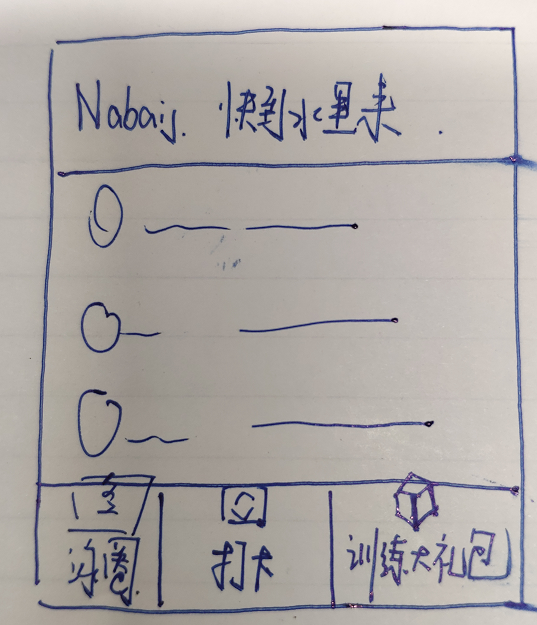 Nabaiji. 快到水里来.
泳圈
打卡
训练大礼包